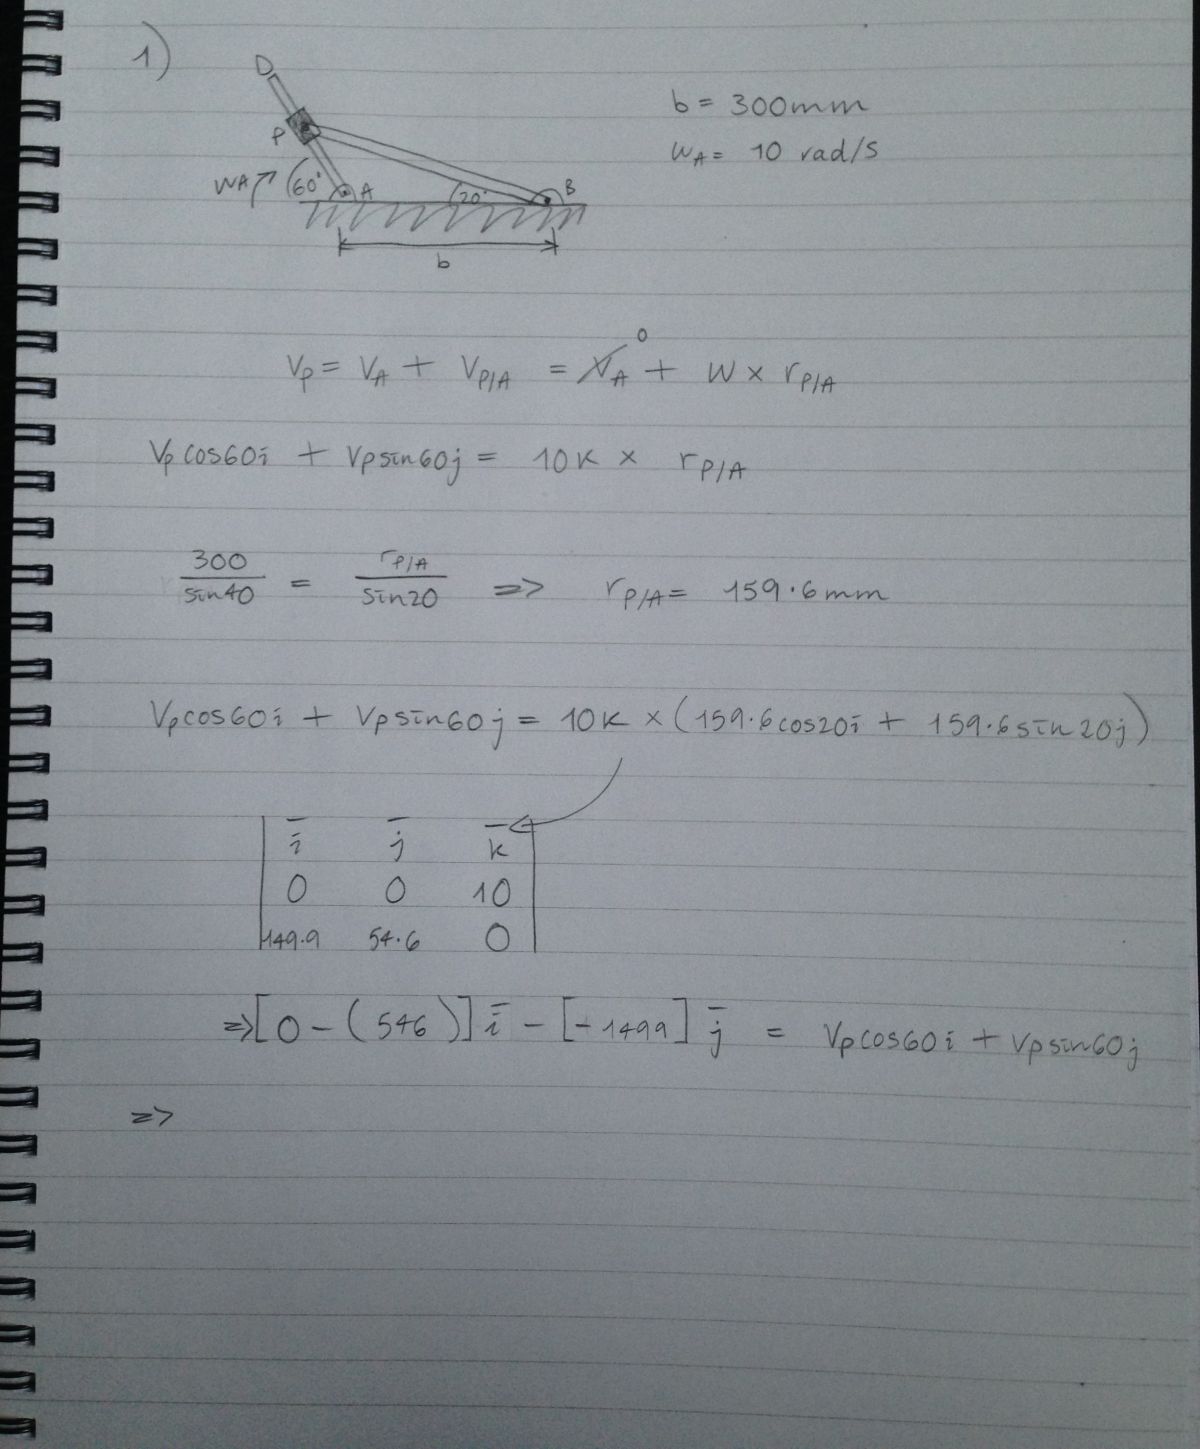 1)
D
b = 300mm
P
WA= 10 rad/s
WA 60° A 20° B
b
Vp = VA + VP/A = VA 0 + W × rP/A
Vp cos60i + Vpsin60j = 10K × rP/A
300/sin40 = rP/A/sin20 => rP/A = 159.6mm
Vpcos60i + Vpsin60j = 10K × (159.6cos20i + 159.6sin20j)
i j k
0 0 10
149.9 54.6 0
=>[0-(546)]i - [-1499]j = Vpcos60i + Vpsin60j
=>